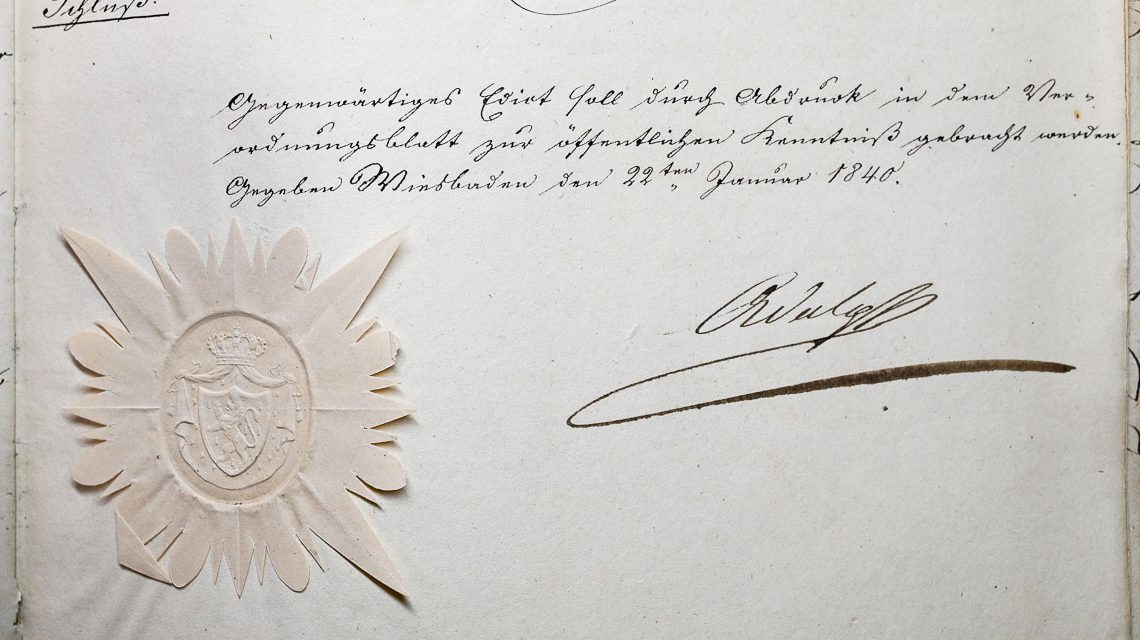 Schluß.
Gegenwärtiges Edict soll durch Abdruck in dem Ver-
ordnungsblatt zur öffentlichen Kenntniß gebracht werden.
Gegeben Wiesbaden den 22ten Januar 1840.
Adolph